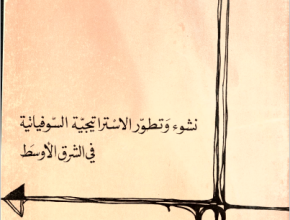 نشوء وَتطوّر الاسْتراتيجيّة السّوفياتيّة
في الشرق الأوسَط